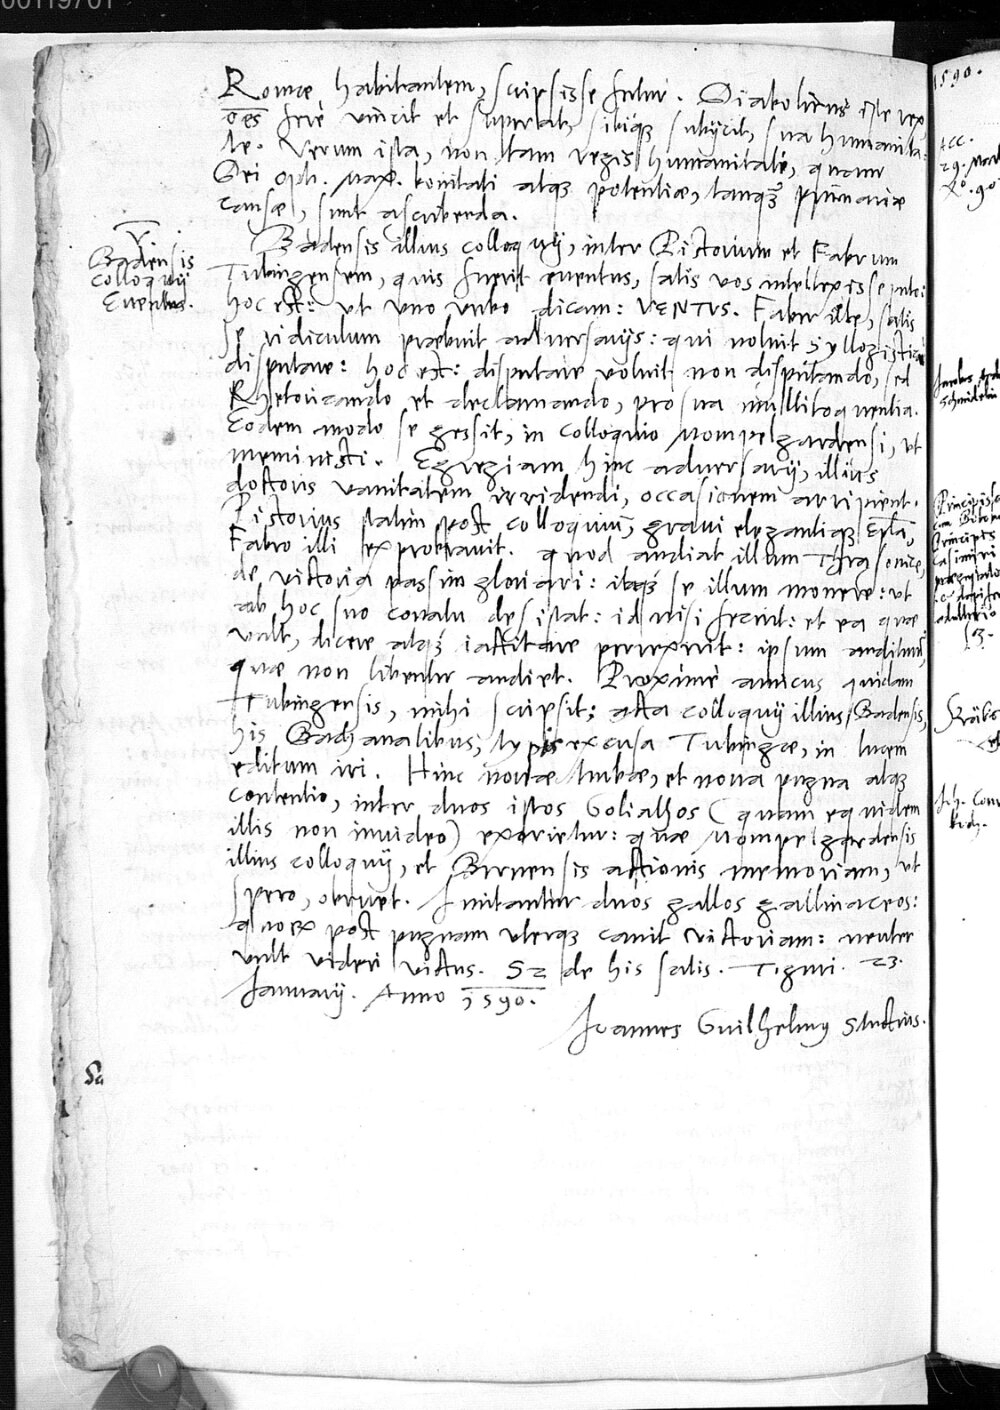 00119701
Romæ habitantem, scripsisse fertur. Diabolicus iste rex
oēs ferè vincit et superat, sibiq₃ subijcit, sua humanita-
te. Verum ista, non tam regis humanitati, quam
Dei Opt. Max. bonitati atq₃ potentiæ, tanq₃ primariæ
causæ, sunt ascribenda.
V
Badensis
Colloquij
Euentus.
Badensis illius colloquij, inter Pistorium et Fabrum
Tubingensem, quis fuerit euentus, satis vos intellexisse puto:
hoc est: ut vno verbo dicam: VENTVS. Faber ille, satis
se ridiculum præbuit aduersarijs: qui noluit syllogisticè
disputare: hoc est: disputare voluit non disputando, sed
Rhetoricando et declamando, pro sua multiloquentia.
Eodem modo se gessit, in colloquio Mompelgardensi, ut
meministi. Egregiam hinc aduersarij, illius
doctoris vanitatem irridendi, occasionem arripient.
Pistorius statim post colloquiū, graui elegantiq₃ Epla,
Fabro illi exprobrauit. quod audiat illum Thrasonicè,
de victoria passim gloriari: itaq₃ se illum monere: ut
ab hoc suo conatu desistat: id nisi fecerit: et ea quæ
vult, dicere atq₃ iactitare perrexerit: ipsum auditurū,
quæ non libenter audiet. Proximè amicus quidam
Tubingensis, mihi scripsit; acta colloquij illius Badensis,
his Bachanalibus, typis excusa Tubingæ, in lucem
editum iri. Hinc nouæ turbæ, et noua pugna atq₃
contentio, inter duos istos Goliathos (quam equidem
illis non inuideo) exorietur: quæ Mompelgardensis
illius colloquij, et Bernensis actionis memoriam, ut
spero, obruet. Imitantur duos gallos gallinaceos:
quorx post pugnam vterq₃ canit victoriam: neuter
vult videri victus. Sz de his satis. Tiguri. 23.
Januarij. Anno 1590.
Joannes Guilhelmg Stuckius.
1590.
Acc.